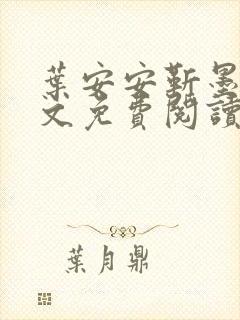 葉安安靳墨
文免費閱讀
葉月鼎